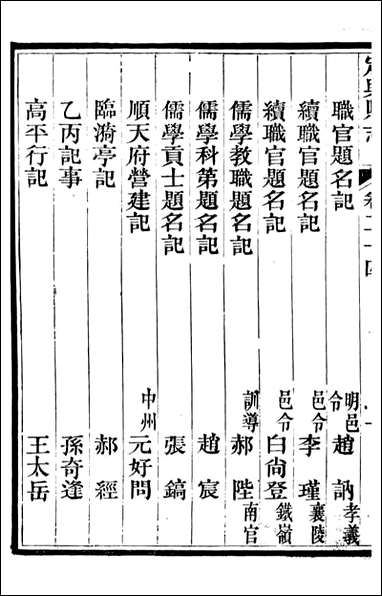 定興縣志 卷二十四
職官題名記 明邑令 趙訥 孝義
續職官題名記 邑令 李瑾 襄陵
續職官題名記 邑令 白尚登 鐵嶺
儒學教職題名記 訓導 郝陞 南官
儒學科第題名記 趙宸
儒學貢士題名記 張鎬
順天府營建記 中州 元好問
臨漪亭記 郝經
乙丙記事 孫奇逢
高平行記 王太岳